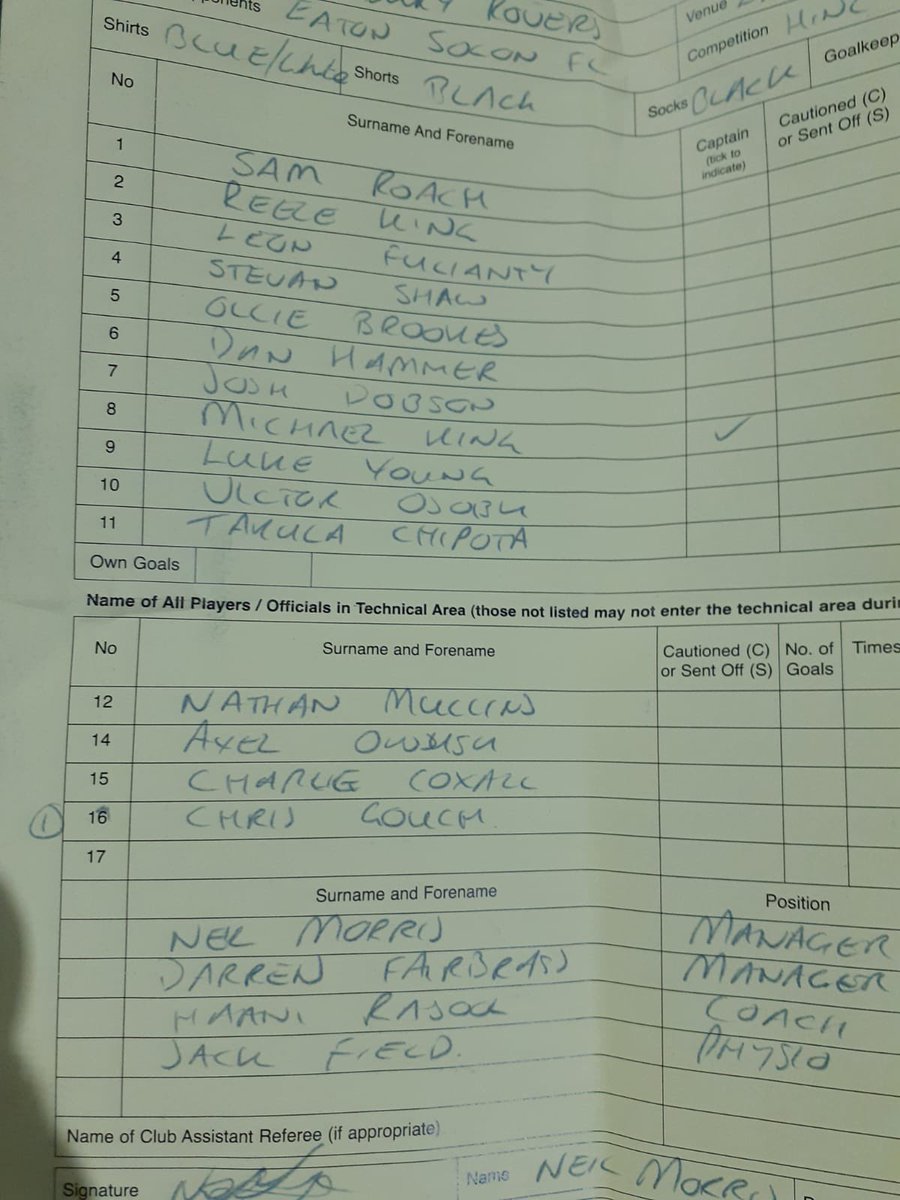 ROVERS Venue
EATON SOCON FC Competition HINC
Shirts BLUE/White Shorts BLACK Socks BLACK Goalkeep
No Surname And Forename Captain (tick to indicate) Cautioned (C) or Sent Off (S)
1 SAM ROACH
2 REECE KING
3 LEON
4 STEVAN SHAW
5 OLLIE BROOKES
6 DAN HAMMER
7 JOSH DOBSON
8 MICHAEL KING ✓
9 LUKE YOUNG
10 VICTOR
11 TAKULA CHIPOTA
Own Goals
Name of All Players / Officials in Technical Area (those not listed may not enter the technical area duri
No Surname and Forename Cautioned (C) or Sent Off (S) No. of Goals Times
12 NATHAN MULLINS
14 AXEL
15 CHARLIE COXALL
1 16 CHRIS GOUCH
17
Surname and Forename Position
NEIL MORRIS MANAGER
DARREN FAIRBRASS MANAGER
HAANI COACH
JACK FIELD. PHYSIO
Name of Club Assistant Referee (if appropriate)
Signature Name NEIL MORRIS